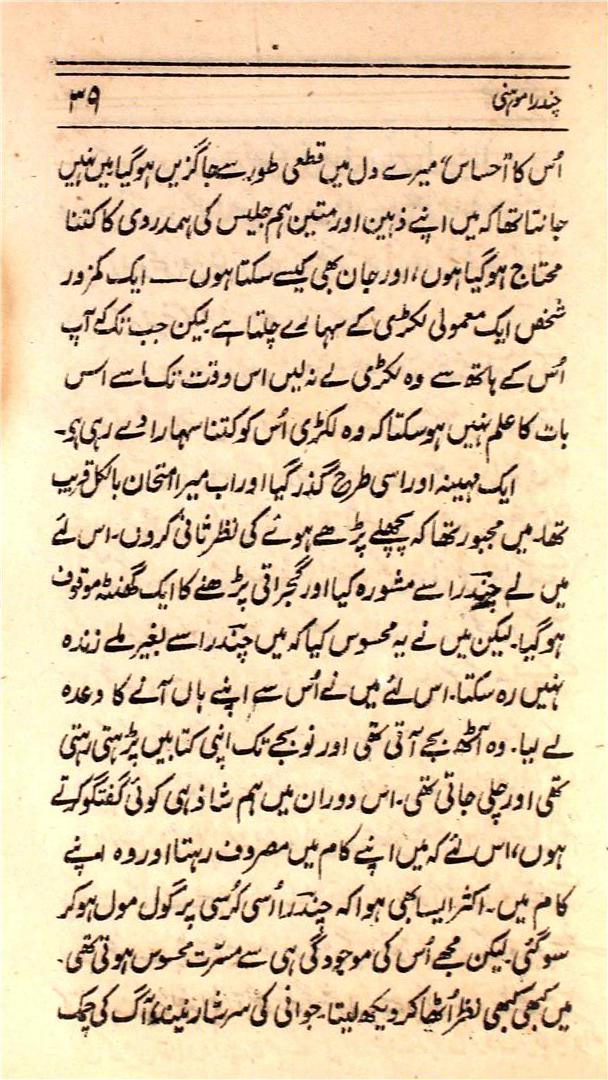 چندرا موہنی
۳۹
اُس کا ”احساس“ میرے دل میں قطعی طور سے جاگزیں ہوگیا میں نہیں
جانتا تھا کہ میں اپنے ذہین اور متین ہم جلیس کی ہمدردی کا کتنا
محتاج ہوگیا ہوں، اور جان بھی کیسے سکتا ہوں ـــ ایک کمزور
شخص ایک معمولی لکڑی کے سہارے چلتا ہے لیکن جب تک کے آپ
اُس کے ہاتھ سے وہ لکڑی لے نہ لیں اس وقت تک اسے اسس
بات کا علم نہیں ہو سکتا کہ وہ لکڑی اُس کو کتنا سہارا دے رہی ہو۔
ایک مہینہ اور اسی طرح گذر گیا اور اب میرا امتحان بالکل قریب
تھا۔ میں مجبور تھا کہ پچھلے پڑھے ہوئے کی نظر ثانی کروں۔ اس لئے
میں نے چندرا سے مشورہ کیا اور گجراتی پڑھنے کا ایک گھنٹہ موقوف
ہو گیا۔ لیکن میں نے یہ محسوس کیا کہ میں چندرا سے بغیر ملے زندہ
نہیں رہ سکتا۔ اس لئے میں نے اُس سے اپنے ہاں آنے کا وعدہ
لے لیا۔ وہ آٹھ بجے آتی تھی اور نو بجے تک اپنی کتابیں پڑہتی رہتی
تھی اور چلی جاتی تھی۔ اس دوران میں ہم شاذ ہی کوئی گفتگو کرتے
ہوں، اس لئے کہ میں اپنے کام میں مصروف رہتا اور وہ اپنے
کام میں۔ اکثر ایسا بھی ہوا کہ چندرا اُسی کُرسی پر گول مول ہو کر
سو گئی۔ لیکن مجھے اُس کی موجودگی ہی سے مسرّت محسوس ہوتی تھی۔
میں کبھی کبھی نظر اُٹھا کر دیکھ لیتا۔ جوانی کی سرشار نیند، آگ کی چمک